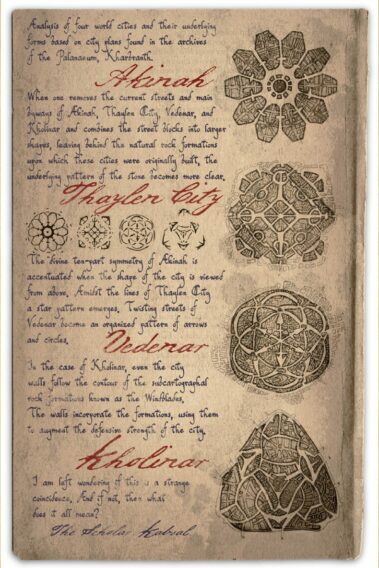 Analysis of four world cities and their underlying
forms based on city plans found in the archives
of the Palanaeum, Kharbranth.
Akinah
When one removes the current streets and main
byways of Akinah, Thaylen City, Vedenar, and
Kholinar and combines the street blocks into larger
shapes, leaving behind the natural rock formations
upon which these cities were originally built, the
underlying pattern of the stone becomes more clear.
Thaylen City
The divine ten-part symmetry of Akinah is
accentuated when the shape of the city is viewed
from above. Amidst the lines of Thaylen City
a star pattern emerges. Twisting streets of
Vedenar become an organized pattern of arrows
and circles.
Vedenar
In the case of Kholinar, even the city
walls follow the contour of the subcartographal
rock formations known as the Windblades.
The walls incorporate the formations, using them
to augment the defensive strength of the city.
Kholinar
I am left wondering if this is a strange
coincidence. And if not, then what
does it all mean?
The Scholar Kabsal